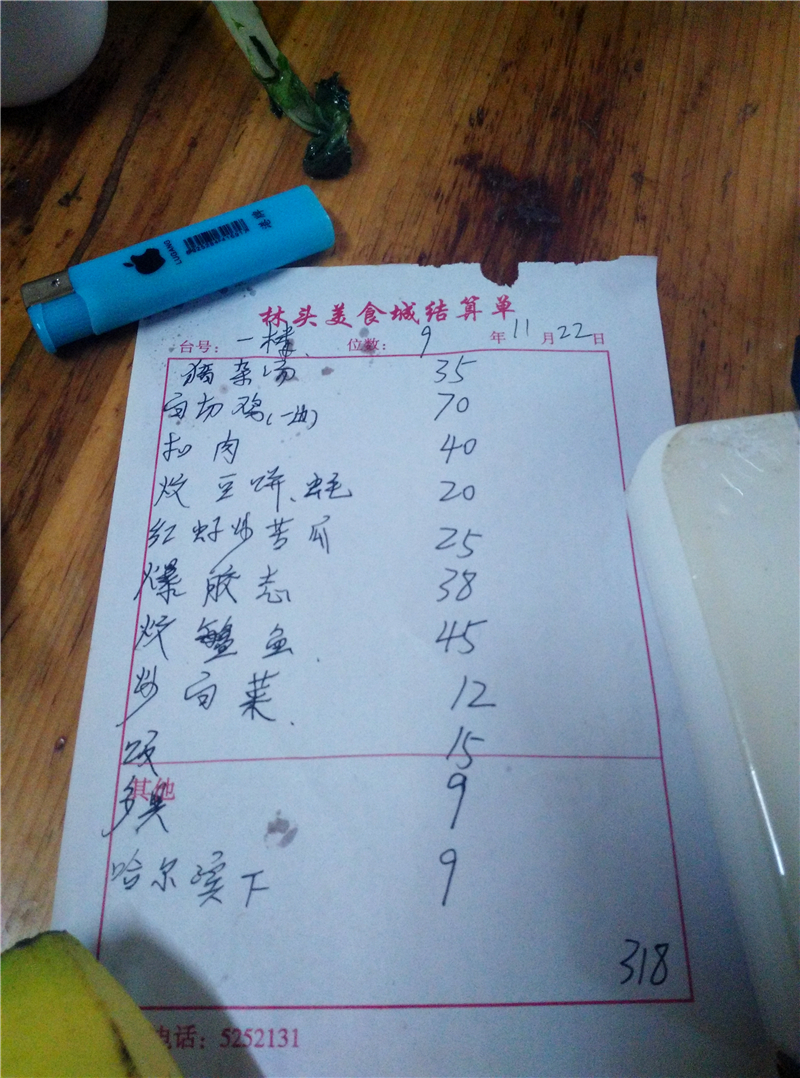 LUGANG
林头美食城结算单
台号：一楼 位数：9 年11月22日
猪杂汤 35
白切鸡(一只) 70
扣肉 40
炆豆饼、蚝 20
红虾炒苦瓜 25
爆 38
炆鱼 45
炒白菜. 12
饭 15
其他
9
哈尔滨下 9
318
电话：5252131